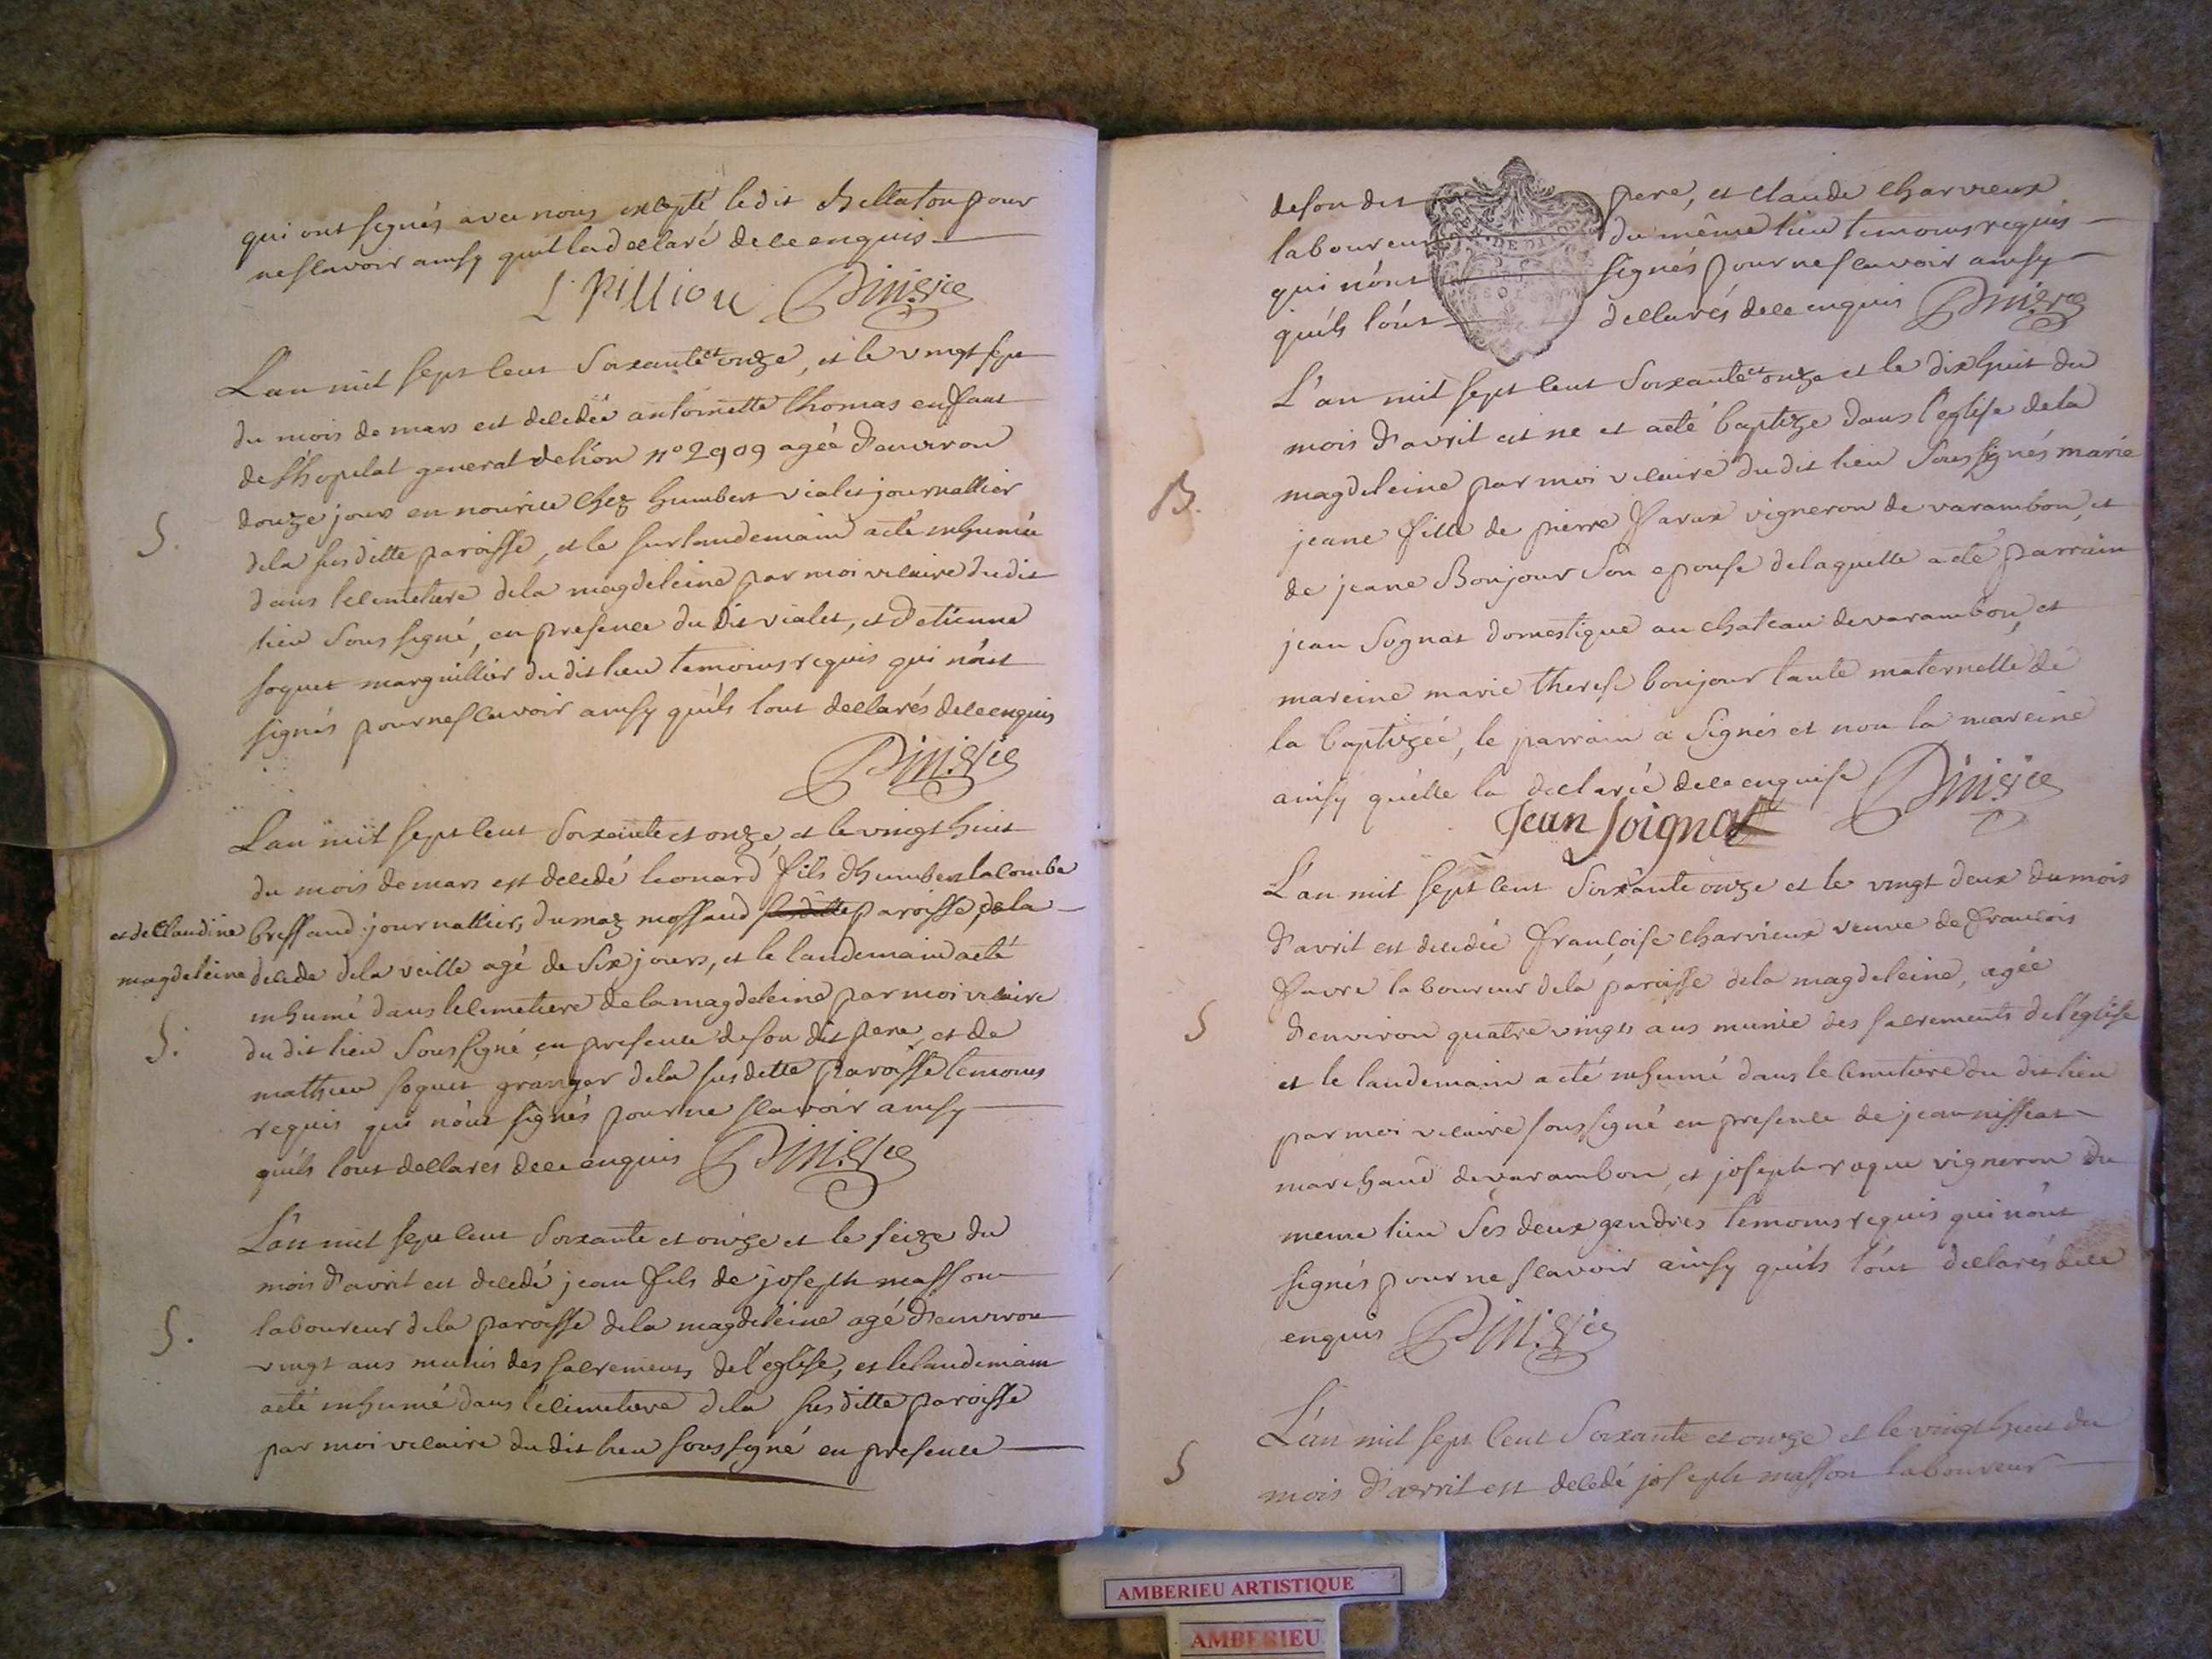 qui ont signés avec nous excepté ledit Bellaton pour
ne scavoir ainsy quil la declaré de ce enquis
L. Pillion
L'an mil sept cent soixante et onze, et le vingt sept
du mois de mars est decedée antoinette thomas enfant
de l'hopital general de lion n° 2909 agée d'environ
douze jours en nourice chez humbert vialet journallier
S. dela susditte paroisse, et le surlandemain a eté inhumée
dans le cimetiere dela magdeleine par moi vicaire dudit
lieu soussigné, en presence du dit vialet, et d'etienne
soquet marguillier du dit lieu temoins requis qui n'ont
signés pour ne scavoir ainsy qu'ils l'ont declarés de ce enquis
L'an mil sept cent soixante et onze, et le vingt huit
du mois de mars est decedé leonard fils d'humbert lacombe
et de claudine bressand journallier, du maz mossand paroisse, dela
magdeleine decede dela veille agé de six jours, et le landemain a eté
inhumé dans le cimetiere de la magdeleine par moi vicaire
S. du dit lieu soussigné en presence de son dit pere, et de
mathieu soquet granger dela susditte paroisse temoins
requis qui n'ont signés pour ne scavoir ainsy
qu'ils l'ont declarés de ce enquis
L'an mil sept cent soixante et onze et le seize du
mois d'avril est decedé jean fils de joseph masson
S. laboureur dela paroisse dela magdeleine agé d'environ
vingt ans munis des sacrements de l'église, et le landemain
a eté inhumé dans le cimetiere dela susditte paroisse
par moi vicaire du dit lieu soussigné en presence
de son dit pere, et claude charvieux
laboureur du même lieu temoins requis
qui n'ont signés pour ne scavoir ainsy
qu'ils l'ont declarés de ce enquis
L'an mil sept cent soixante et onze et le dixhuit du
mois d'avril est ne et a eté baptize dans l'eglise dela
B. magdeleine par moi vicaire du dit lieu soussignés marie
jeane fille de pierre favax vigneron de varambon, et
de jeane Bonjour son epouse delaquelle a eté parrain
jean sognat domestique au chateau de varambon, et
mareine marie therese bonjour tante maternelle de
la baptizée, le parrain a signés et non la mareine
ainsy qu'elle la declarée de ce enquise
Jean Soignat
L'an mil sept cent soixante onze et le vingt deux du mois
d'avril est decedée francoise charvieux veuve de francois
favre laboureur dela paroisse dela magdeleine, agée
S d'environ quatre vingts ans munie des sacrements de l'église
et le landemain a eté inhumé dans le cimetiere du dit lieu
par moi vicaire soussigné en presence de jean nisseat
marchand de varambon, et joseph roque vigneron du
meme lieu ses deux gendres temoins requis qui n'ont
signés pour ne scavoir ainsy qu'ils l'ont declarés de ce
enquis
L'an mil sept cent soixante et onze et le vingt huit du
S mois d'avril est decedé joseph masson laboureur
AMBERIEU ARTISTIQUE
AMBERIEU